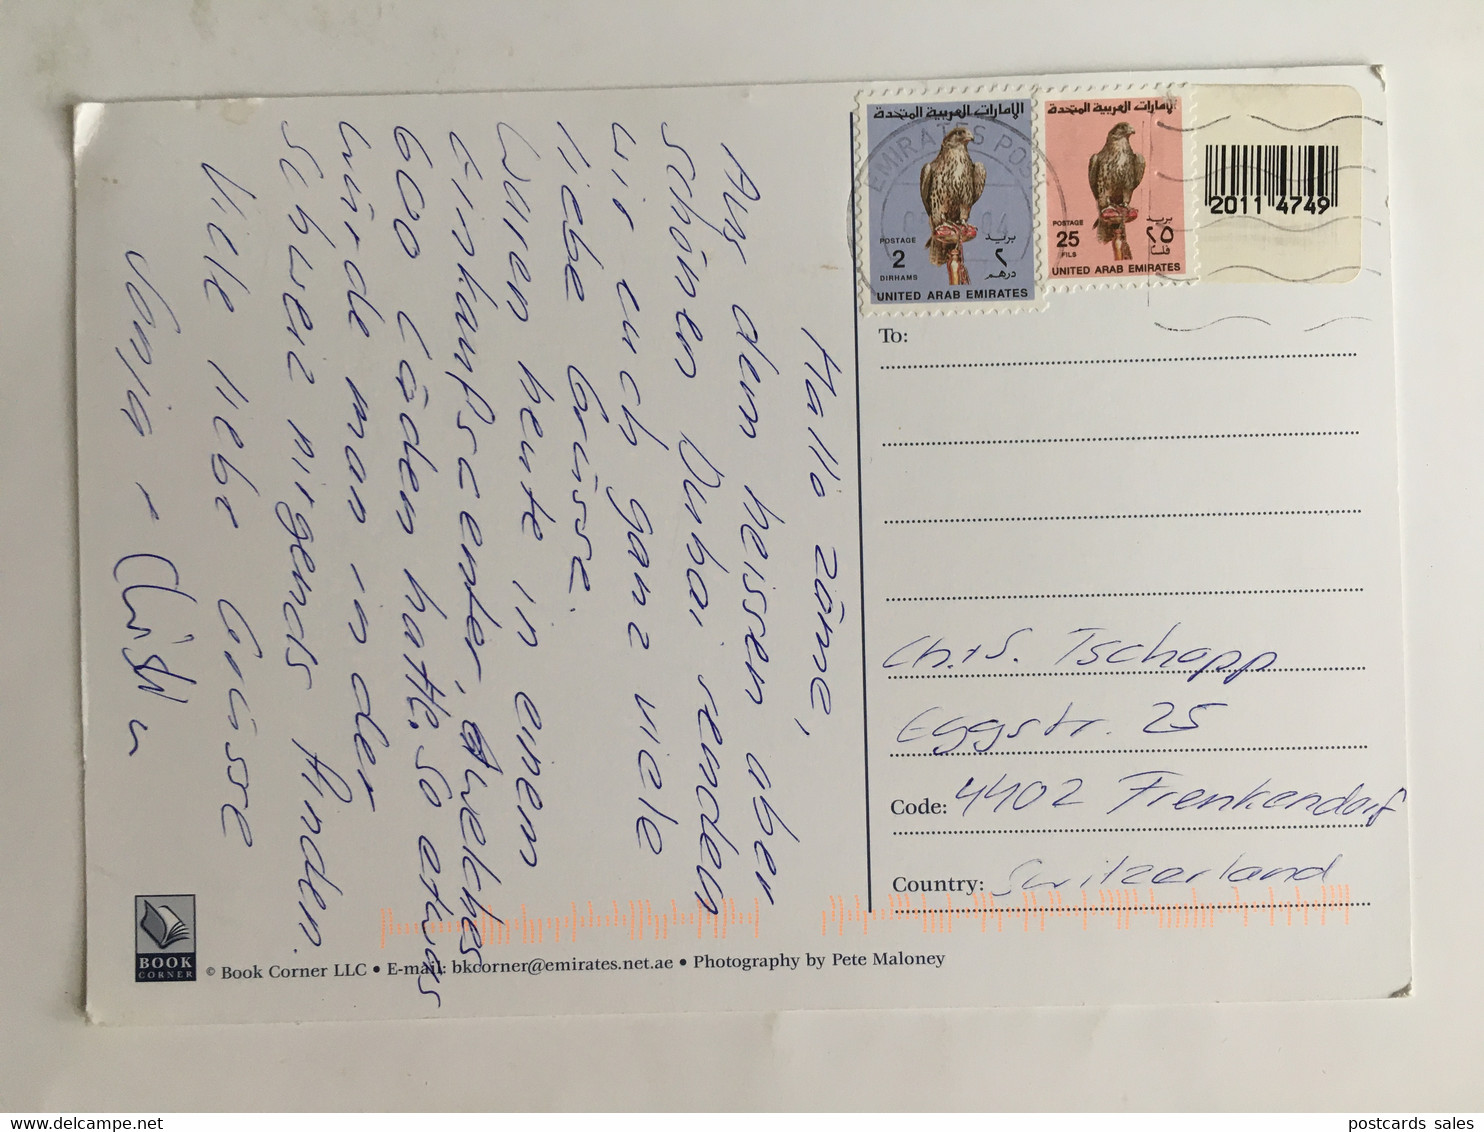 Hallo zäme,
Aus dem heissen aber
schönen Dubai senden
wir euch ganz viele
liebe Grüsse.
Waren heute in einem
Einkaufscenter, welches
600 Läden hatte. So etwas
würde man in der
Schweiz nirgends finden.
Viele liebe Grüsse
Sonja +
الإمارات العربية المتحدة
POSTAGE
2
DIRHAMS
بريد
٢
درهم
UNITED ARAB EMIRATES
الإمارات العربية المتحدة
POSTAGE
25
FILS
بريد
٢٥
فلسا
UNITED ARAB EMIRATES
EMIRATES POST
2011 4749
To:
Ch.+S. Tschopp
Eggstr. 25
Code: 4402 Frenkendorf
Country: Switzerland
BOOK
CORNER
© Book Corner LLC • E-mail: bkcorner@emirates.net.ae • Photography by Pete Maloney
postcards sales